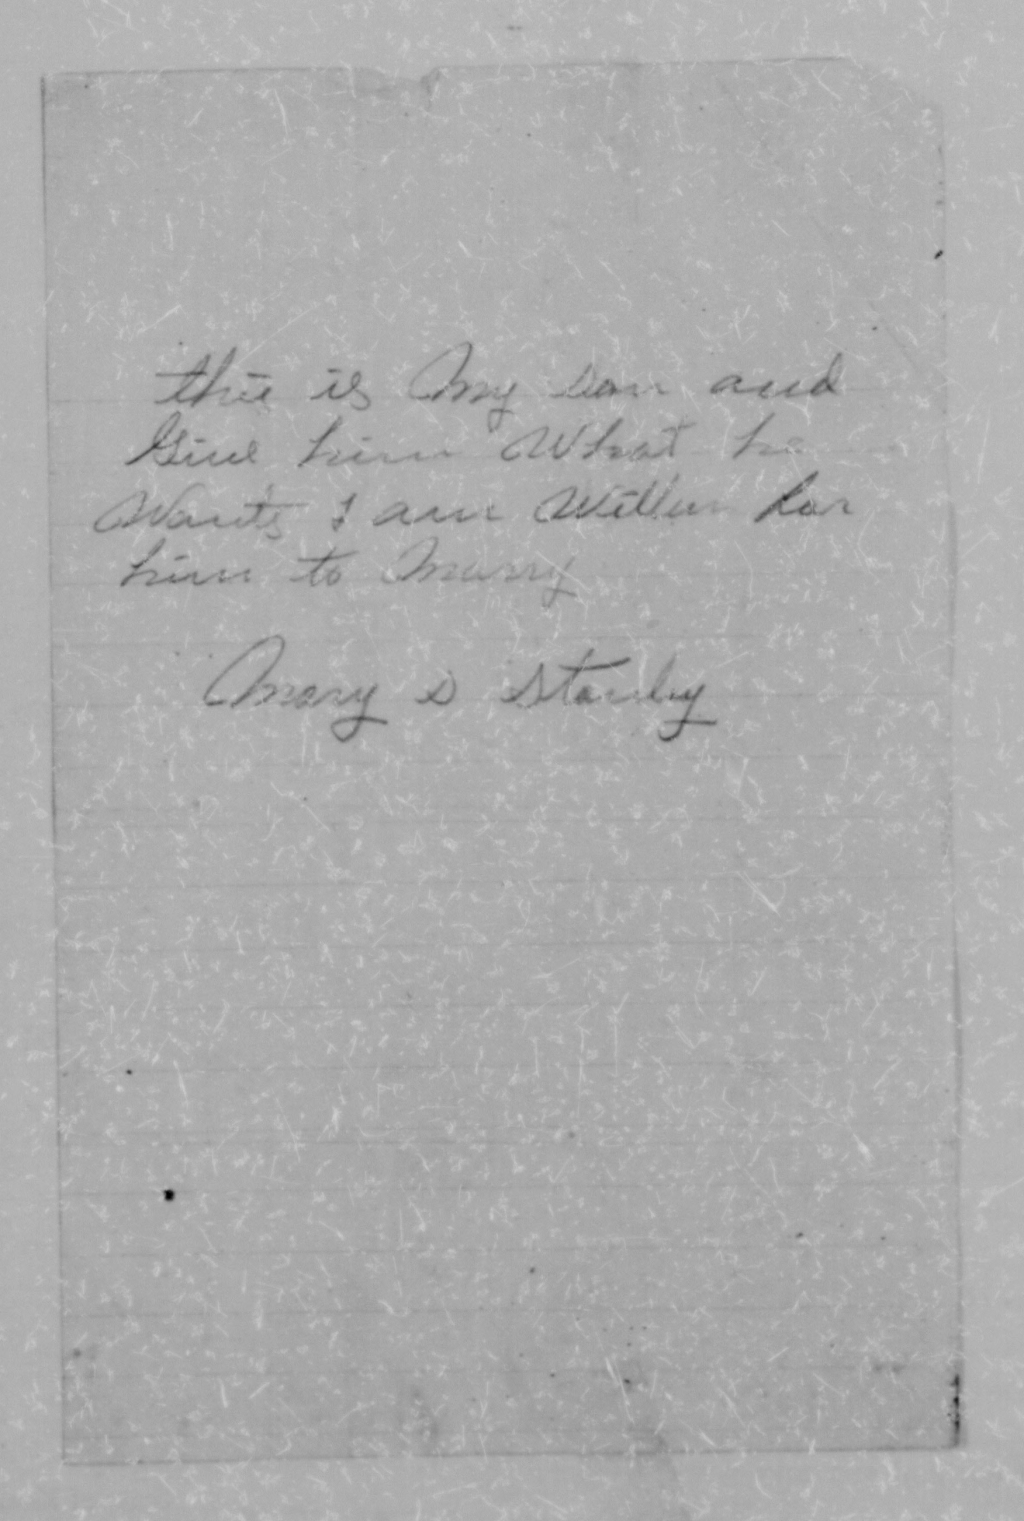 this is My son and
Give him What he
Wants I am Willin for
him to Marry
Mary S Stanley